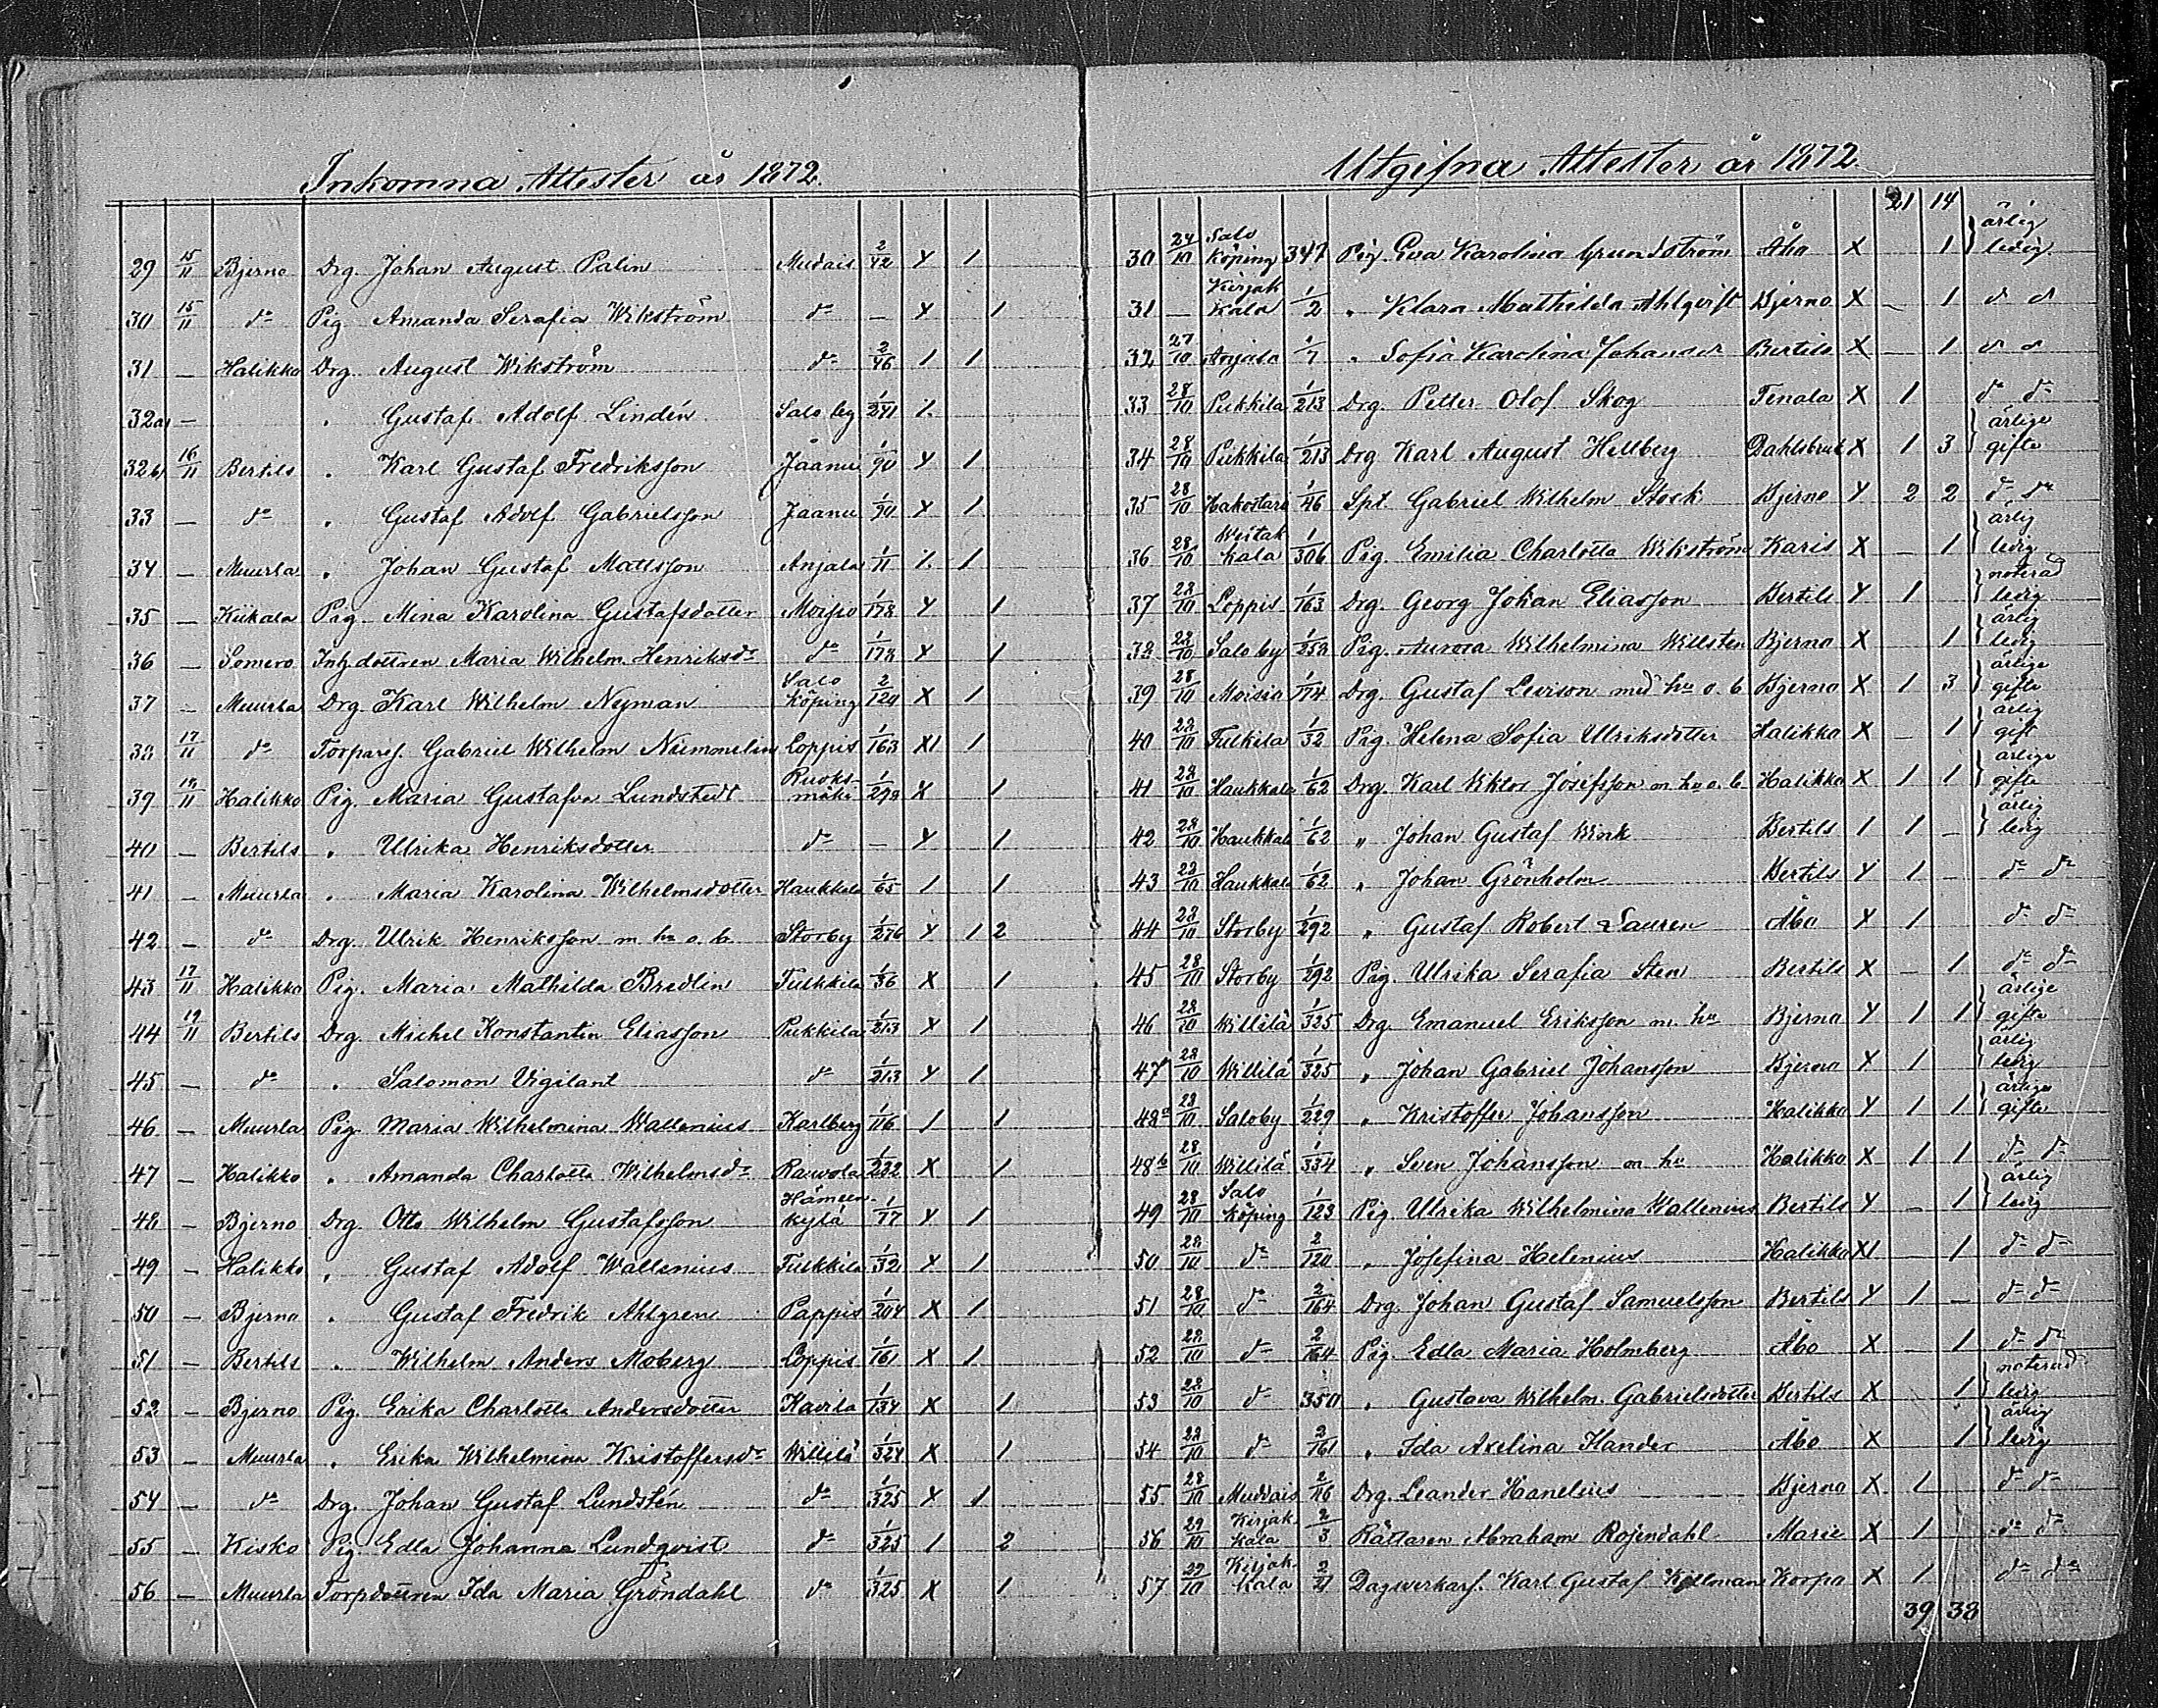 Inkomna Attester år 1872.
29 15/11 Bjerno Drg. Johan August Palin Mudais 2/42 X 1
30 15/11 do Pig. Amanda Serafia Wikström do — X 1
31 — Halikko Drg. August Wikström do 2/46 1 1
32a — " Gustaf Adolf Lindén Salo by 1/241 1.
32b 16/11 Bertils " Karl Gustaf Fredriksson Jaanu 1/90 X 1
33 — do " Gustaf Adolf Gabrielsson Jaanu 1/90 X 1
34 — Muurla " Johan Gustaf Mattsson Anjala 1/11 1. 1
35 — Kiikala Pig. Mina Karolina Gustafsdotter Moisio 1/178 X 1
36 — Somero Inhdottren Maria Wilhelm. Henriksdr do 1/178 X 1
37 — Muurla Drg. Karl Wilhelm Nyman Salo Köping 2/120 X 1
38 17/11 do Torpars. Gabriel Wilhelm Niemmelin Loppis 1/163 X1 1
39 18/11 Halikko Pig. Maria Gustafva Lundstedt Ruoksmäki 1/298 X 1
40 — Bertils " Ulrika Henriksdotter do — X 1
41 — Muurla " Maria Karolina Wilhelmsdotter Haukkala 1/65 1 1
42 — do Drg. Ulrik Henriksson m. hu o. b. Storby 1/276 X 1 2
43 17/11 Halikko Pig. Maria Mathilda Bredlin Tulkkila 1/36 X 1
44 19/11 Bertils Drg. Mickel Konstantin Eliasson Pukkila 1/213 X 1
45 — do " Salomon Vigilant do 1/213 X 1
46 — Muurla Pig. Maria Wilhelmina Wallenius Karlberg 1/116 1 1
47 — Halikko " Amanda Charlotta Wilhelmsdr Rawola 1/222 X 1
48 — Bjerno Drg. Otto Wilhelm Gustafsson Hämeenkylä 1/17 X 1
49 — Halikko " Gustaf Adolf Wallenius Tulkkila 1/32 X 1
50 — Bjerno " Gustaf Fredrik Ahlgren Pappis 1/204 X 1
51 — Bertils " Wilhelm Anders Moberg Loppis 1/161 X 1
52 — Bjerno Pig. Erika Charlotta Andersdotter Kavila 1/134 X 1
53 — Muurla " Erika Wilhelmina Kristoffersdr Willilä 1/324 X 1
54 — do Drg. Johan Gustaf Lundstén do 1/325 X 1
55 — Kisko Pig. Edla Johanna Lundqvist do 1/325 1 2
56 — Muurla Torpdottren Ida Maria Gröndahl do 1/325 X 1
Utgifna Attester år 1872.
21 14
30 24/10 Salo Köping 347 Pig. Eva Karolina Grundström Åbo X 1 ärlig ledig
31 — Kirjakkala 1/2 " Klara Mathilda Ahlqvist Bjerno X — 1 d d
32 27/10 Anjala 1/7 " Sofia Karolina Johansdr Bertils X — 1 d d
33 28/10 Pukkila 1/213 Drg. Petter Olof Skog Tenala X 1 do do
34 28/10 Pukkila 1/213 Drg Karl August Hellberg Dahlsbruk X 1 3 ärlige gifte
35 28/10 Hakostaro 1/46 Spt. Gabriel Wilhelm Stock Bjerno X 2 2 do do
36 28/10 Kala 1/306 Pig. Emilia Charlotta Wikström Karis X — 1 ärlig ledig
37 28/10 Loppis 1/163 Drg. Georg Johan Eliasson Bertils X 1 noterad ledig
38 28/10 Salo by 1/252 Pig. Aurora Wilhelmina Willsten Bjerno X 1 ärlig ledig
39 28/10 Moisio 1/174 Drg. Gustaf Levison med hu o. b Bjerno X 1 3 ärlige gifte
40 28/10 Tulkila 1/32 Pig. Helena Sofia Ulriksdotter Halikko X — 1 ärlig gift
41 28/10 Haukkala 1/62 Drg. Karl Viktor Josefsson m hu o. b. Halikko X 1 1 ärlige gifte
42 28/10 Haukkala 1/62 " Johan Gustaf Wink Bertils 1 1 — ärlig ledig
43 28/10 Haukkala 1/62 " Johan Grönholm Bertils X 1 — do do
44 28/10 Storby 1/292 " Gustaf Robert Lauren Åbo X 1 do do
45 28/10 Storby 1/292 Pig. Ulrika Serafia Sten Bertils X — 1 do do
46 28/10 Willilä 1/325 Drg. Emanuel Eriksson m. hu Bjerno X 1 1 ärlige gifte
47 28/10 Willilä 1/325 " Johan Gabriel Johansson Bjerno X 1 ärlig ledig
48a 28/10 Saloby 1/229 " Kristoffer Johansson Halikko X 1 1 ärlige gifte
48b 28/10 Willilä 1/334 " Sven Johansson m hu Halikko X 1 1 do do
49 28/10 Salo Köping 1/123 Pig. Ulrika Wilhelmina Wallenius Bertils X — 1 ärlig ledig
50 28/10 do 2/120 " Josefina Helenius Halikko X1 1 do do
51 28/10 do 2/164 Drg. Johan Gustaf Samuelsson Bertils X 1 — do do
52 28/10 do 2/164 Pig. Edla Maria Holmberg Åbo X 1 do do
53 28/10 do 350 " Gustava Wilhelm. Gabrielsdotter Bertils X 1 noterad ledig
54 28/10 do 2/161 " Ida Axelina Hander Åbo X 1 ärlig ledig
55 28/10 Mudais 2/16 Drg. Leander Hanelius Bjerno X 1 do do
56 29/10 Kirjakkala 2/3 Rättaren Abraham Rosendahl Marie X 1 do do
57 29/10 Kirjakkala 2/21 Dagsverkars. Karl Gustaf Killman Korpo X 1 do do
39 38